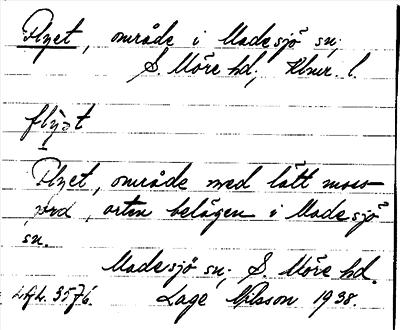 Flyet, område i Madesjö sn;
S. Möre hd; Klmr. l.
flyət
Flyet, område med lätt moss-
jord, orten belägen i Madesjö
sn.
Madesjö sn; S. Möre hd.
Lage Nilsson 1938.